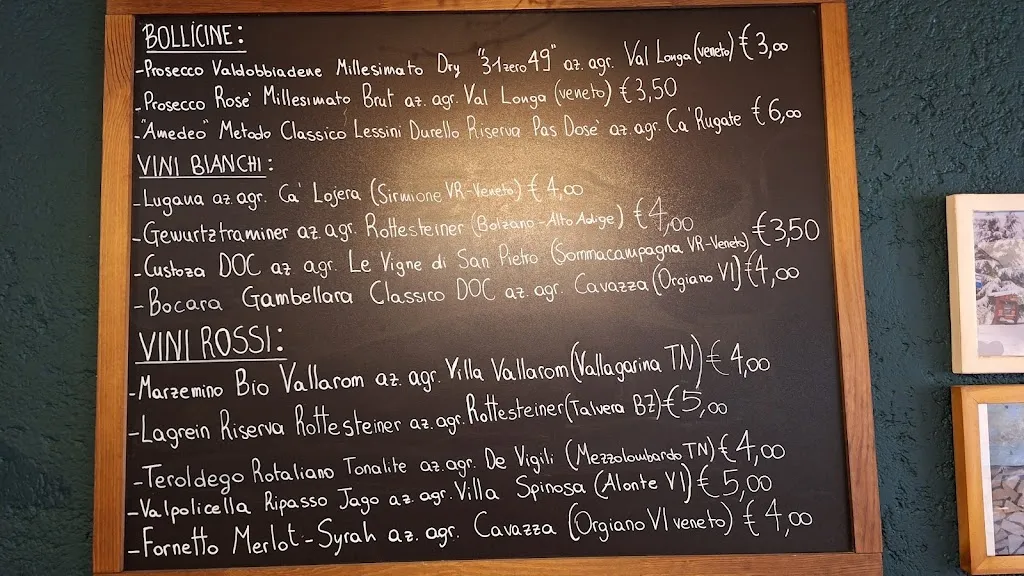 BOLLICINE:
-Prosecco Valdobbiadene Millesimato Dry "31zero49" az. agr. Val Longa (veneto) € 3,00
-Prosecco Rosè Millesimato Brut az. agr. Val Longa (veneto) € 3,50
-"Amedeo" Metodo Classico Lessini Durello Riserva Pas Dosè az agr. Cà Rugate € 6,00
VINI BIANCHI:
-Lugana az. agr. Ca' Lojera (Sirmione VR-Veneto) € 4,00
-Gewurtztraminer az agr. Rottesteiner (Bolzano-Alto Adige) € 4,00
-Custoza DOC az agr. Le Vigne di San Pietro (Sommacampagna VR-Veneto) € 3,50
-Bocara Gambellara Classico DOC az. agr. Cavazza (Orgiano VI) € 4,00
VINI ROSSI:
-Marzemino Bio Vallarom az. agr. Villa Vallarom (Vallagarina TN) € 4,00
-Lagrein Riserva Rottesteiner az. agr. Rottesteiner (Talvera BZ) € 5,00
-Teroldego Rotaliano Tonalite az. agr. De Vigili (Mezzolombardo TN) € 4,00
-Valpolicella Ripasso Jago az. agr. Villa Spinosa (Alonte VI) € 5,00
-Fornetto Merlot-Syrah az. agr. Cavazza (Orgiano VI veneto) € 4,00